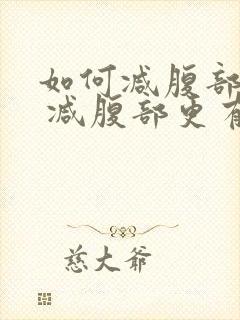 如何减腹部
减腹部更有
慈大爷